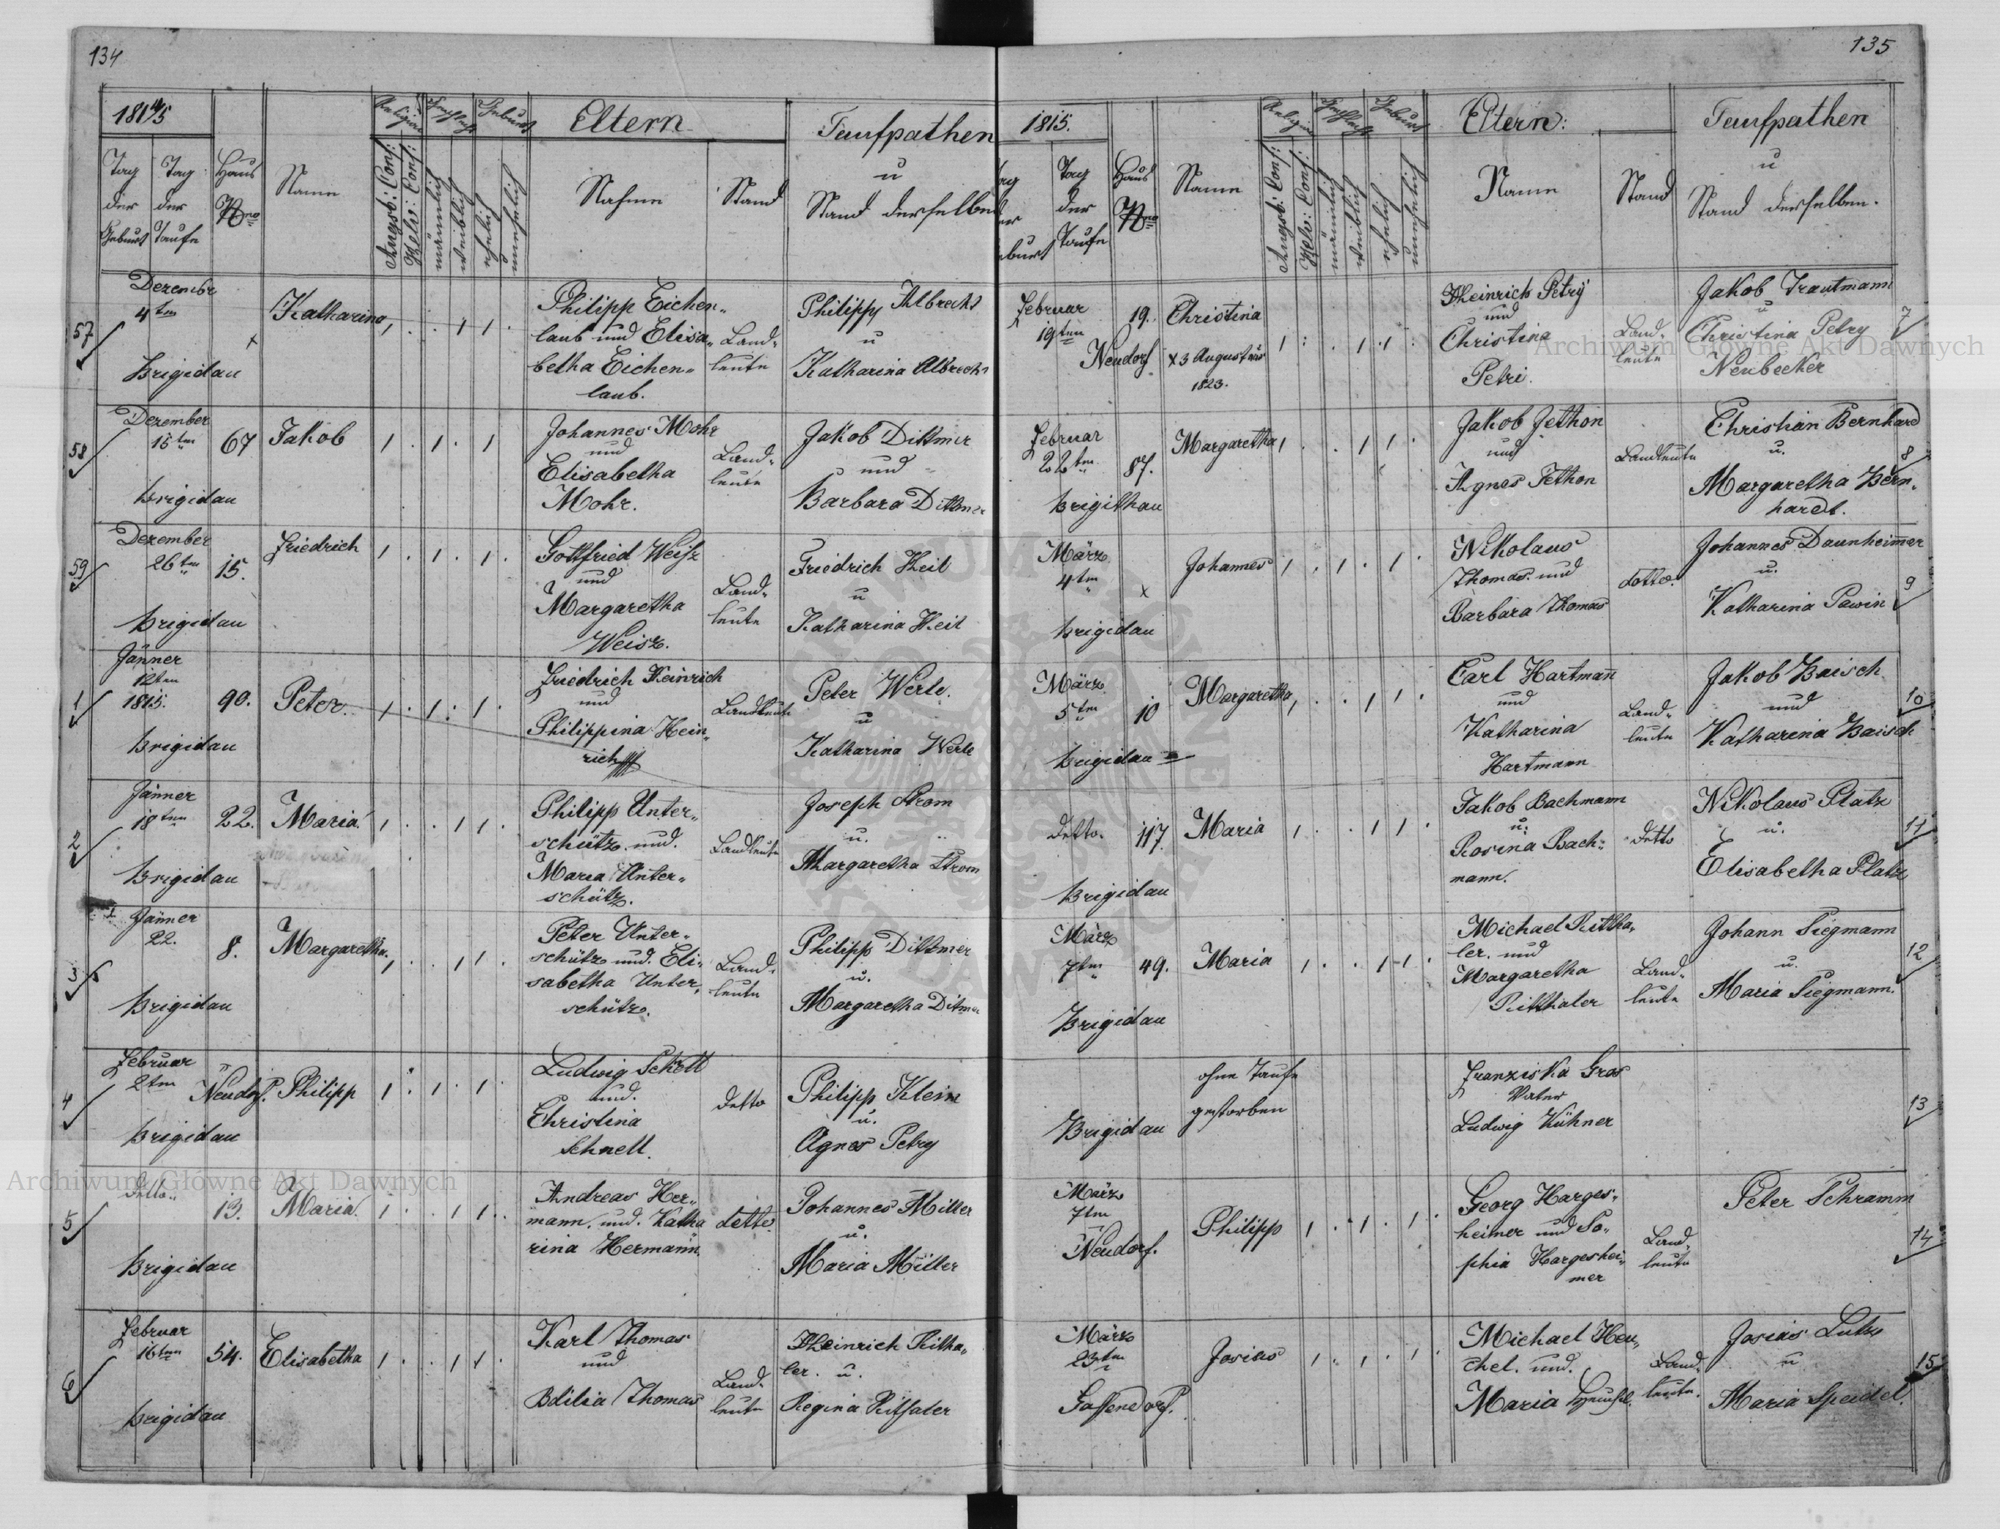 134
1814/5
Religion
Geschlecht
Geburt
Eltern
Taufpathen
u
Stand derselben
Tag der Geburt
Tag der Taufe
Haus Nro
Name
Augsb: Conf:
Helv: Conf:
männlich
weiblich
ehelich
unehelich
Nahme
Stand
57
Dezember
4ten
Brigidau
Katharina
Philipp Eichen-
laub und Elisa-
betha Eichen-
laub.
Land-
leute
Philipp Albrecht
u
Katharina Albrecht
58
Dezember
15ten
67
Brigidau
Jakob
Johannes Mohr
und
Elisabetha
Mohr.
Land-
leute
Jakob Dittmer
und
Barbara Dittmer
59
Dezember
26ten
15.
Brigidau
Friedrich
Gottfried Weisz
und
Margaretha
Weisz.
Land-
leute
Friedrich Heil
u
Katharina Heil
1
Jänner
12ten
1815.
90.
Brigidau
Peter.
Friedrich Heinrich
und
Philippina Hein-
rich
Landleute
Peter Werle.
u
Katharina Werle
2
Jänner
18ten
22.
Brigidau
Maria
Philipp Unter-
schütz. und.
Maria Unter-
schütz.
Landleute
Joseph Strom
u.
Margaretha Strom
3
Jänner
22.
8.
Brigidau
Margaretha.
Peter Unter-
schütz und. Eli-
sabetha Unter-
schütz.
Land-
leute
Philipp Dittmer
u.
Margaretha Ditmer
4
Februar
2ten
Neudorf.
Brigidau
Philipp
Ludwig Schell
und.
Christina
Schnell.
Detto
Philipp Klein
u.
Agnes Petry
5
Detto
13.
Brigidau
Maria.
Andreas Her-
mann. und. Katha
rina Hermann
Detto.
Johannes Miller
u.
Maria Miller
6
Februar
16ten
54.
Brigidau
Elisabetha
Karl Thomas
und
Thomas
Land-
leute
Heinrich Ritha-
ler. u.
Regina Rithaler
135
1815.
Religion
Geschlecht
Geburt
Eltern:
Taufpathen
u
Stand derselben.
Tag der Taufe
Haus Nro
Name
Augsb: Conf:
Helv: Conf:
männlich
weiblich
ehelich
unehelich
Name
Stand
Februar
19ten
19.
Neudorf
Christina
x 3 Augustus
1823.
Heinrich Petry
und
Christina
Petri.
Land-
leute
Jakob Trautmann
u
Christina Petry
Neubecker
7
Februar
22ten
87.
Brigithau
Margaretha
Jakob Jethon
und
Agnes Jethon
Landleute
Christian Bernhard
u.
Margaretha Bern-
hardt.
8
März
4ten
x
Brigidau
Johannes
Nikolaus
Thomas. und
Barbara Thomas
Detto.
Johannes Daunheimer
u.
Katharina Pawin
9
März
5ten
10
Brigidau
Margaretha
Carl Hartman
und
Katharina
Hartmann
Land-
leute
Jakob Baisch
und
Katharina Baisch
10
Detto.
117.
Brigidau
Maria
Jakob Bachmann
u.
Rosina Bach-
mann.
Detto
Nikolaus Platz
u.
Elisabetha Platz
11
März
7ten
49.
Brigidau
Maria
Michael Rittha-
ler. und
Margaretha
Ritthaler
Land-
leute
Johann Siegmann
u.
Maria Siegmann.
12
Brigidau
ohne Taufe
gestorben
Franziska Gros
Vater
Ludwig Kühner
13
März
7ten
Neudorf.
Philipp
Georg Harges-
heimer und So-
phia Hargeshei-
mer
Land-
leute
Peter Schramm
14
März
23ten
Gassendorf.
Josias
Michael Heu-
chel. und.
Maria Heuchel.
Land-
leute.
Josias Lutz
u
Maria Speidel.
15
Archiwum Główne Akt Dawnych
Archiwum Główne Akt Dawnych